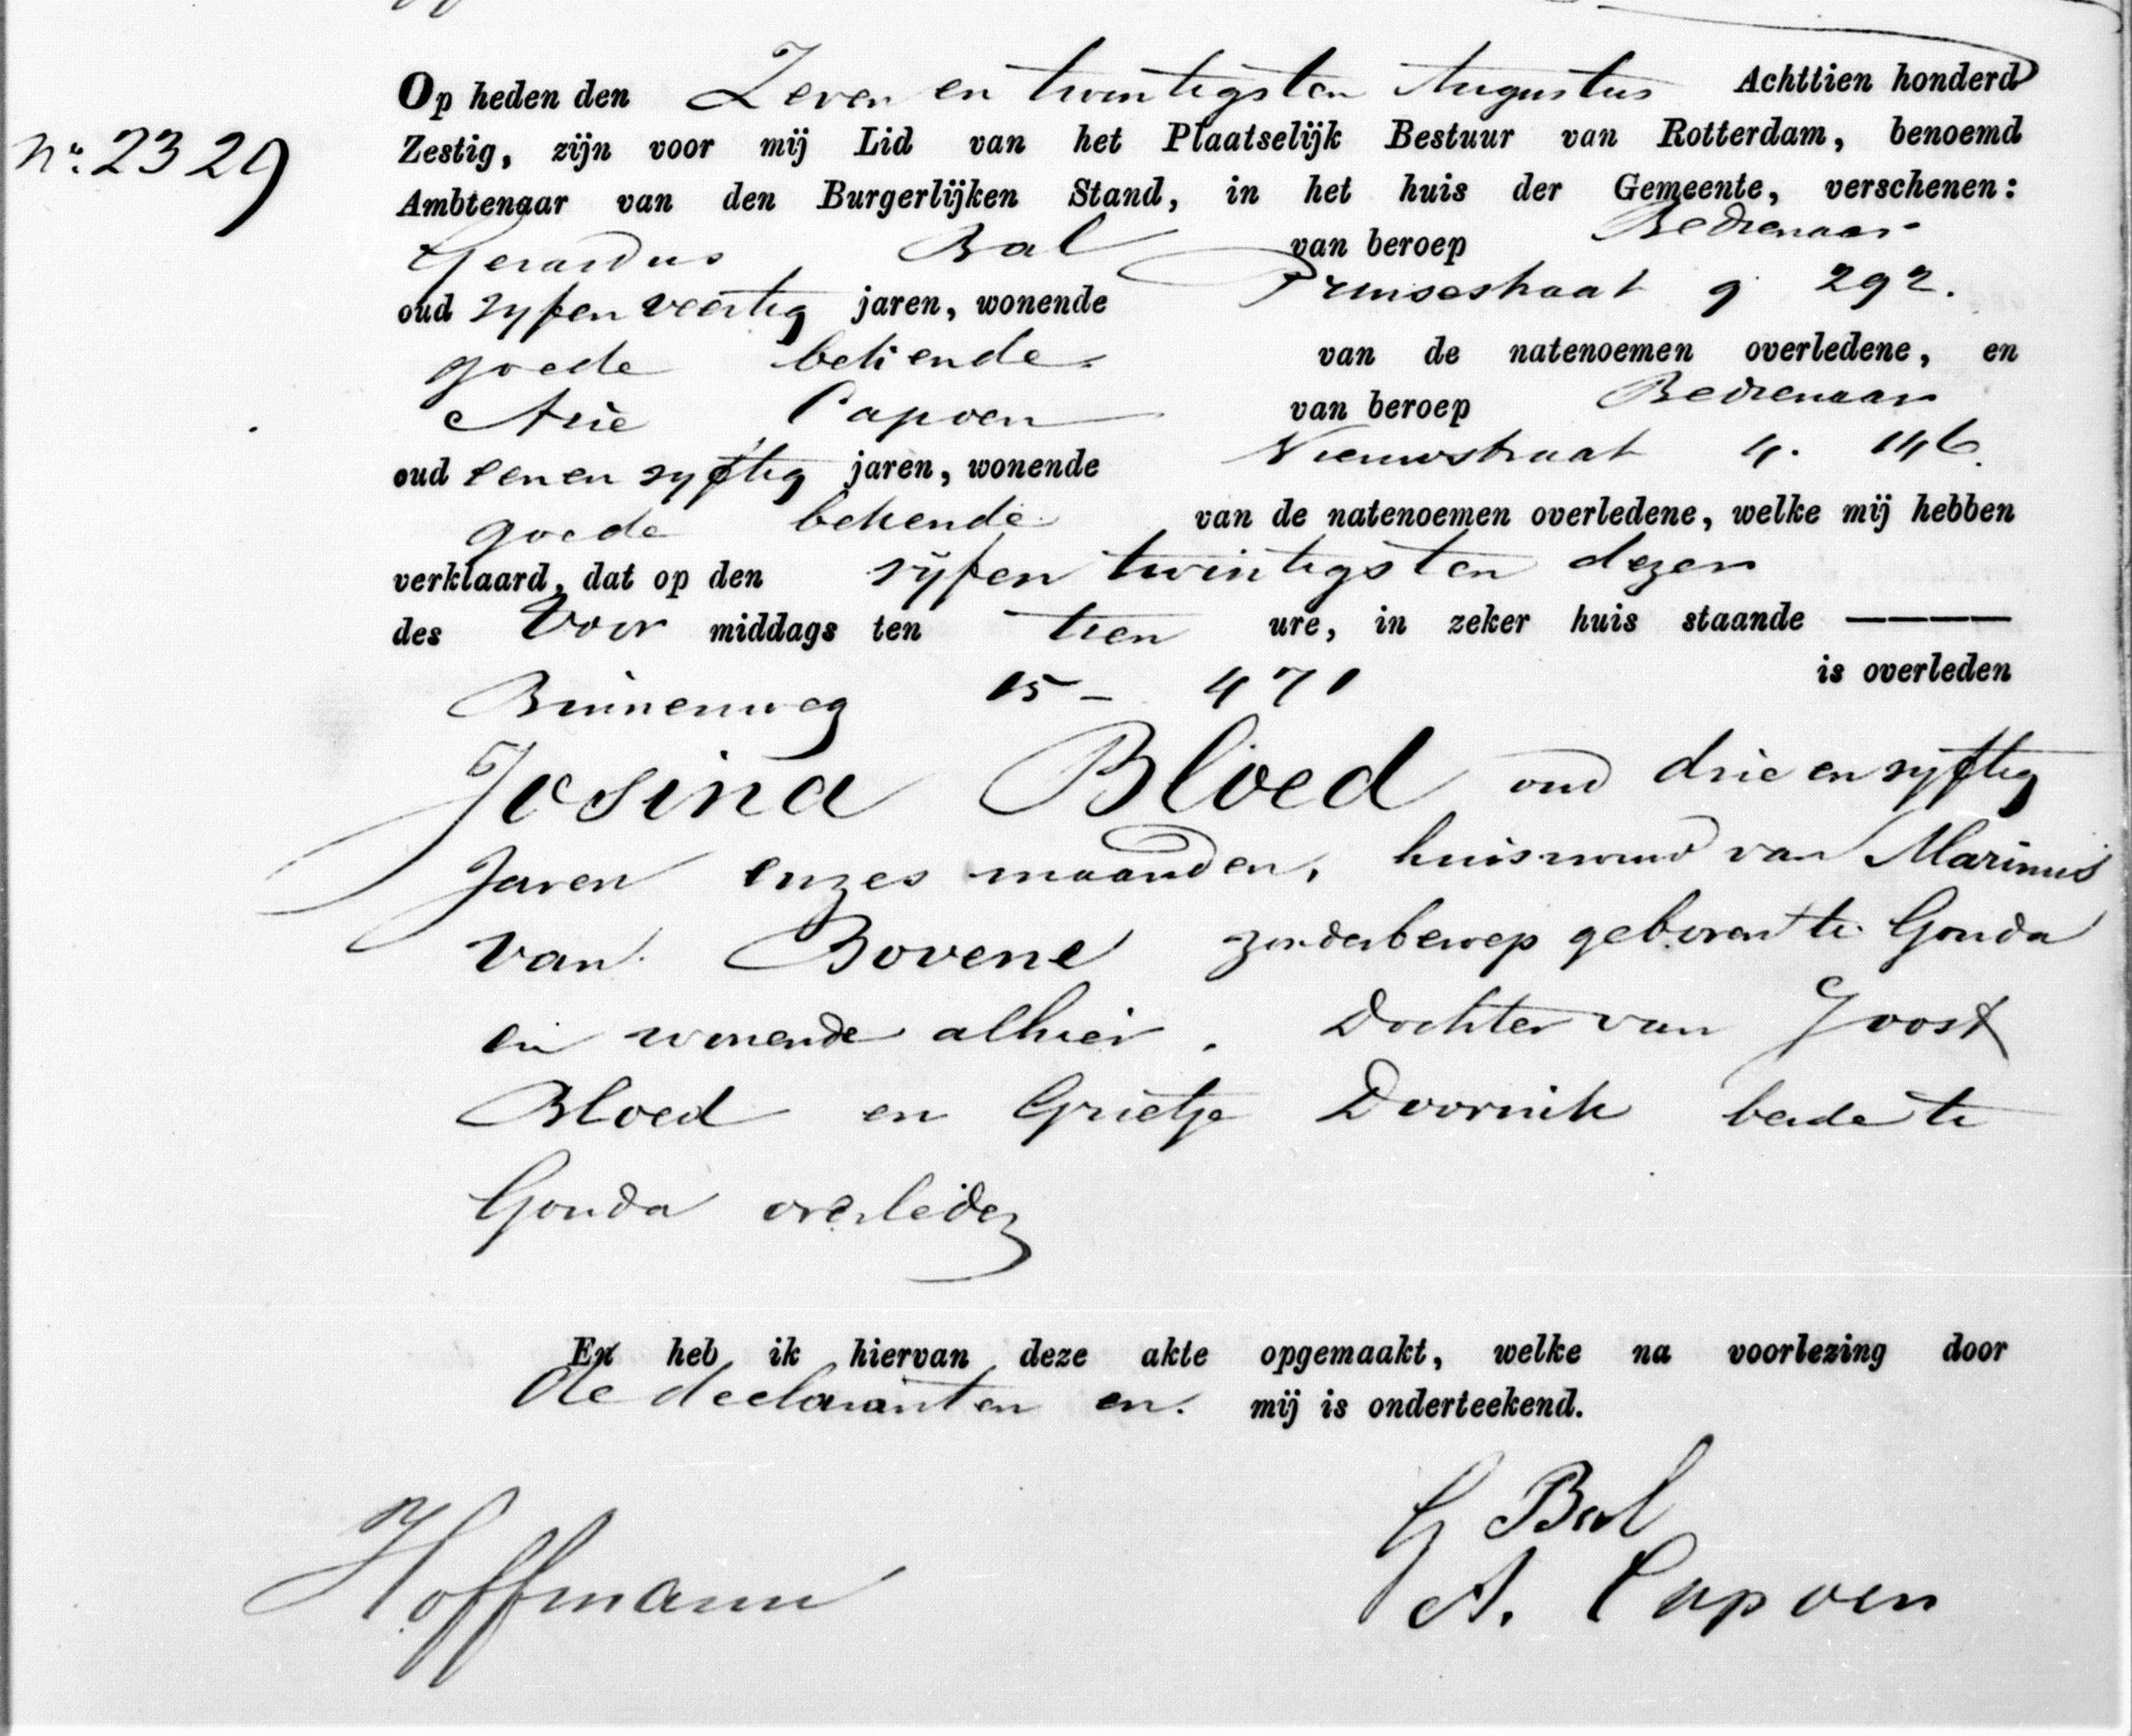 Op heden den Zeven en twintigsten Augustus Achttien honderd
No. 2329
Zestig, zijn voor mij Lid van het Plaatselijk Bestuur van Rotterdam, benoemd
Ambtenaar van den Burgerlijken Stand, in het huis der Gemeente, verschenen:
Gerardus Bal van beroep Bedienaar
oud vyfen veertig jaren, wonende Prinsestraat 9 292.
goede bekende van de natenoemen overledene, en
Arie Capoen van beroep Bedienaar
oud een en vyftig jaren, wonende Nieuwstraat 4. 146.
goede bekende van de natenoemen overledene, welke mij hebben
verklaard, dat op den vyfen twintigsten dezer
des Voor middags ten tien ure, in zeker huis staande ————
Binnenweg 15 – 471 is overleden
Josina Bloed oud drie en vyftig
Jaren en zes maanden, huisvrouw van Marinus
van Bovene zonder beroep geboren te Gouda
en wonende alhier. Dochter van Joost
Bloed en Grietje Doornik beide te
Gouda overleden
En heb ik hiervan deze akte opgemaakt, welke na voorlezing door
de declaranten en mij is onderteekend.
G Bal
Hoffmann
A. Capoen